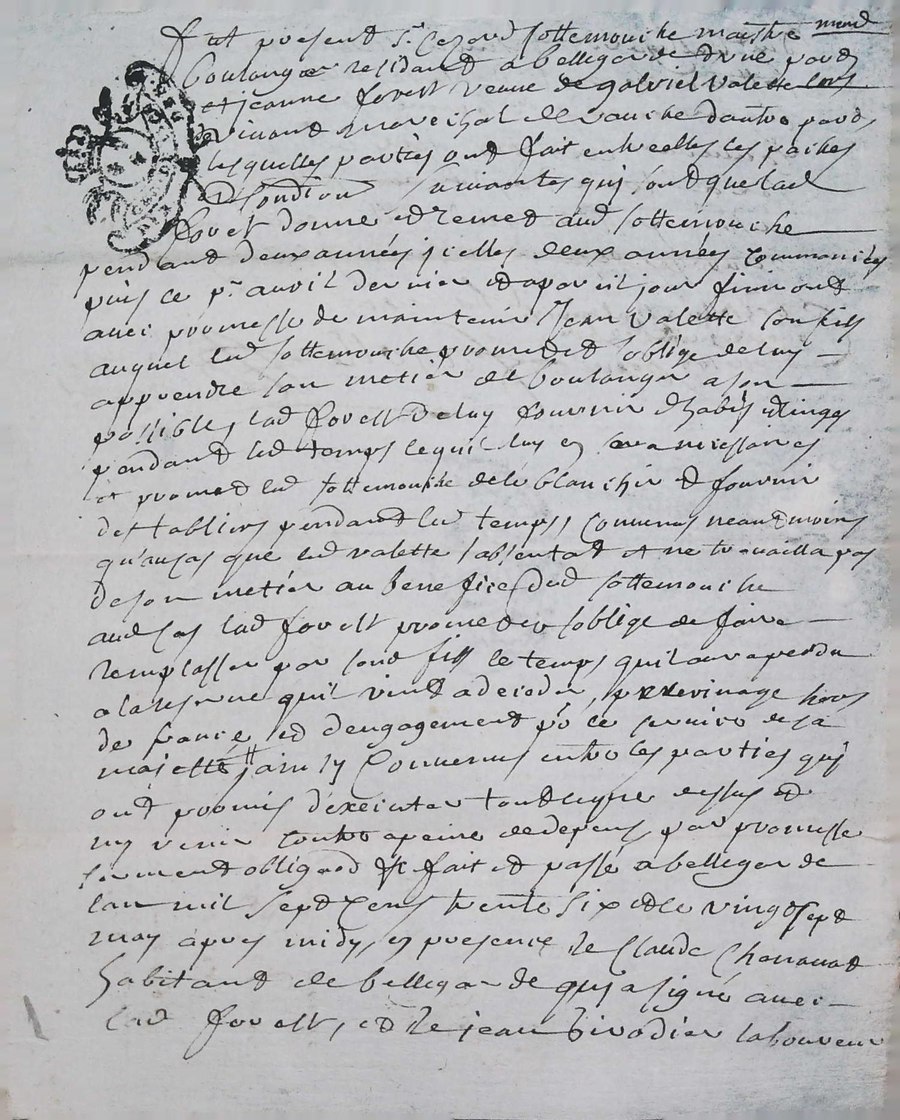 fut present Sr Cezard Sottemouche maistre
boulanger residant a bellegarde dune part
et jeanne forest veuve de gabriel valette
vivant marechal dautre part
lesquelles parties ont fait entreelles les paches
et Condition suivantes qui sont que lad
forest donne et remet aud Sottemouche
pendant deux années jcelles deux années Commancées
puis ce pr avril dernier et apareil jour finiront
avec promesse de maintenir Jean valette son fils
auquel led Sottemouche promet et soblige deluy
apprendre son metier de boulanger a son
possible, lad forest deluy fournir dhabis et linges
pendant led temps lequil luy en sera necessaires
et promet led Sottemouche dele blanchir et fournir
des tabliers pendant led temps, Convenus neantmoins
qu'aucas que led valette sabsentat et ne travailla pas
de son metier au benefice dud Sottemouche
aud cas lad forest promet et soblige de faire
remplasser par sond fils le temps quil aura perdu
a la reserve quil vint a deceder, pelerinage hors
de france, et dengagement po le service de sa
majesté, ainsy Convenus entre les parties qui
ont promis dexecuter tout ceque dessus et
ny venir contre apeine de depens, par promesse
serment obligaon &c fait et passé a bellegarde
lan mil sept cens trente six et le vingt sept
may apres midy, en presence de Claude
habitant de bellegarde qui a signé avec
lad forest, et de jean laboureur